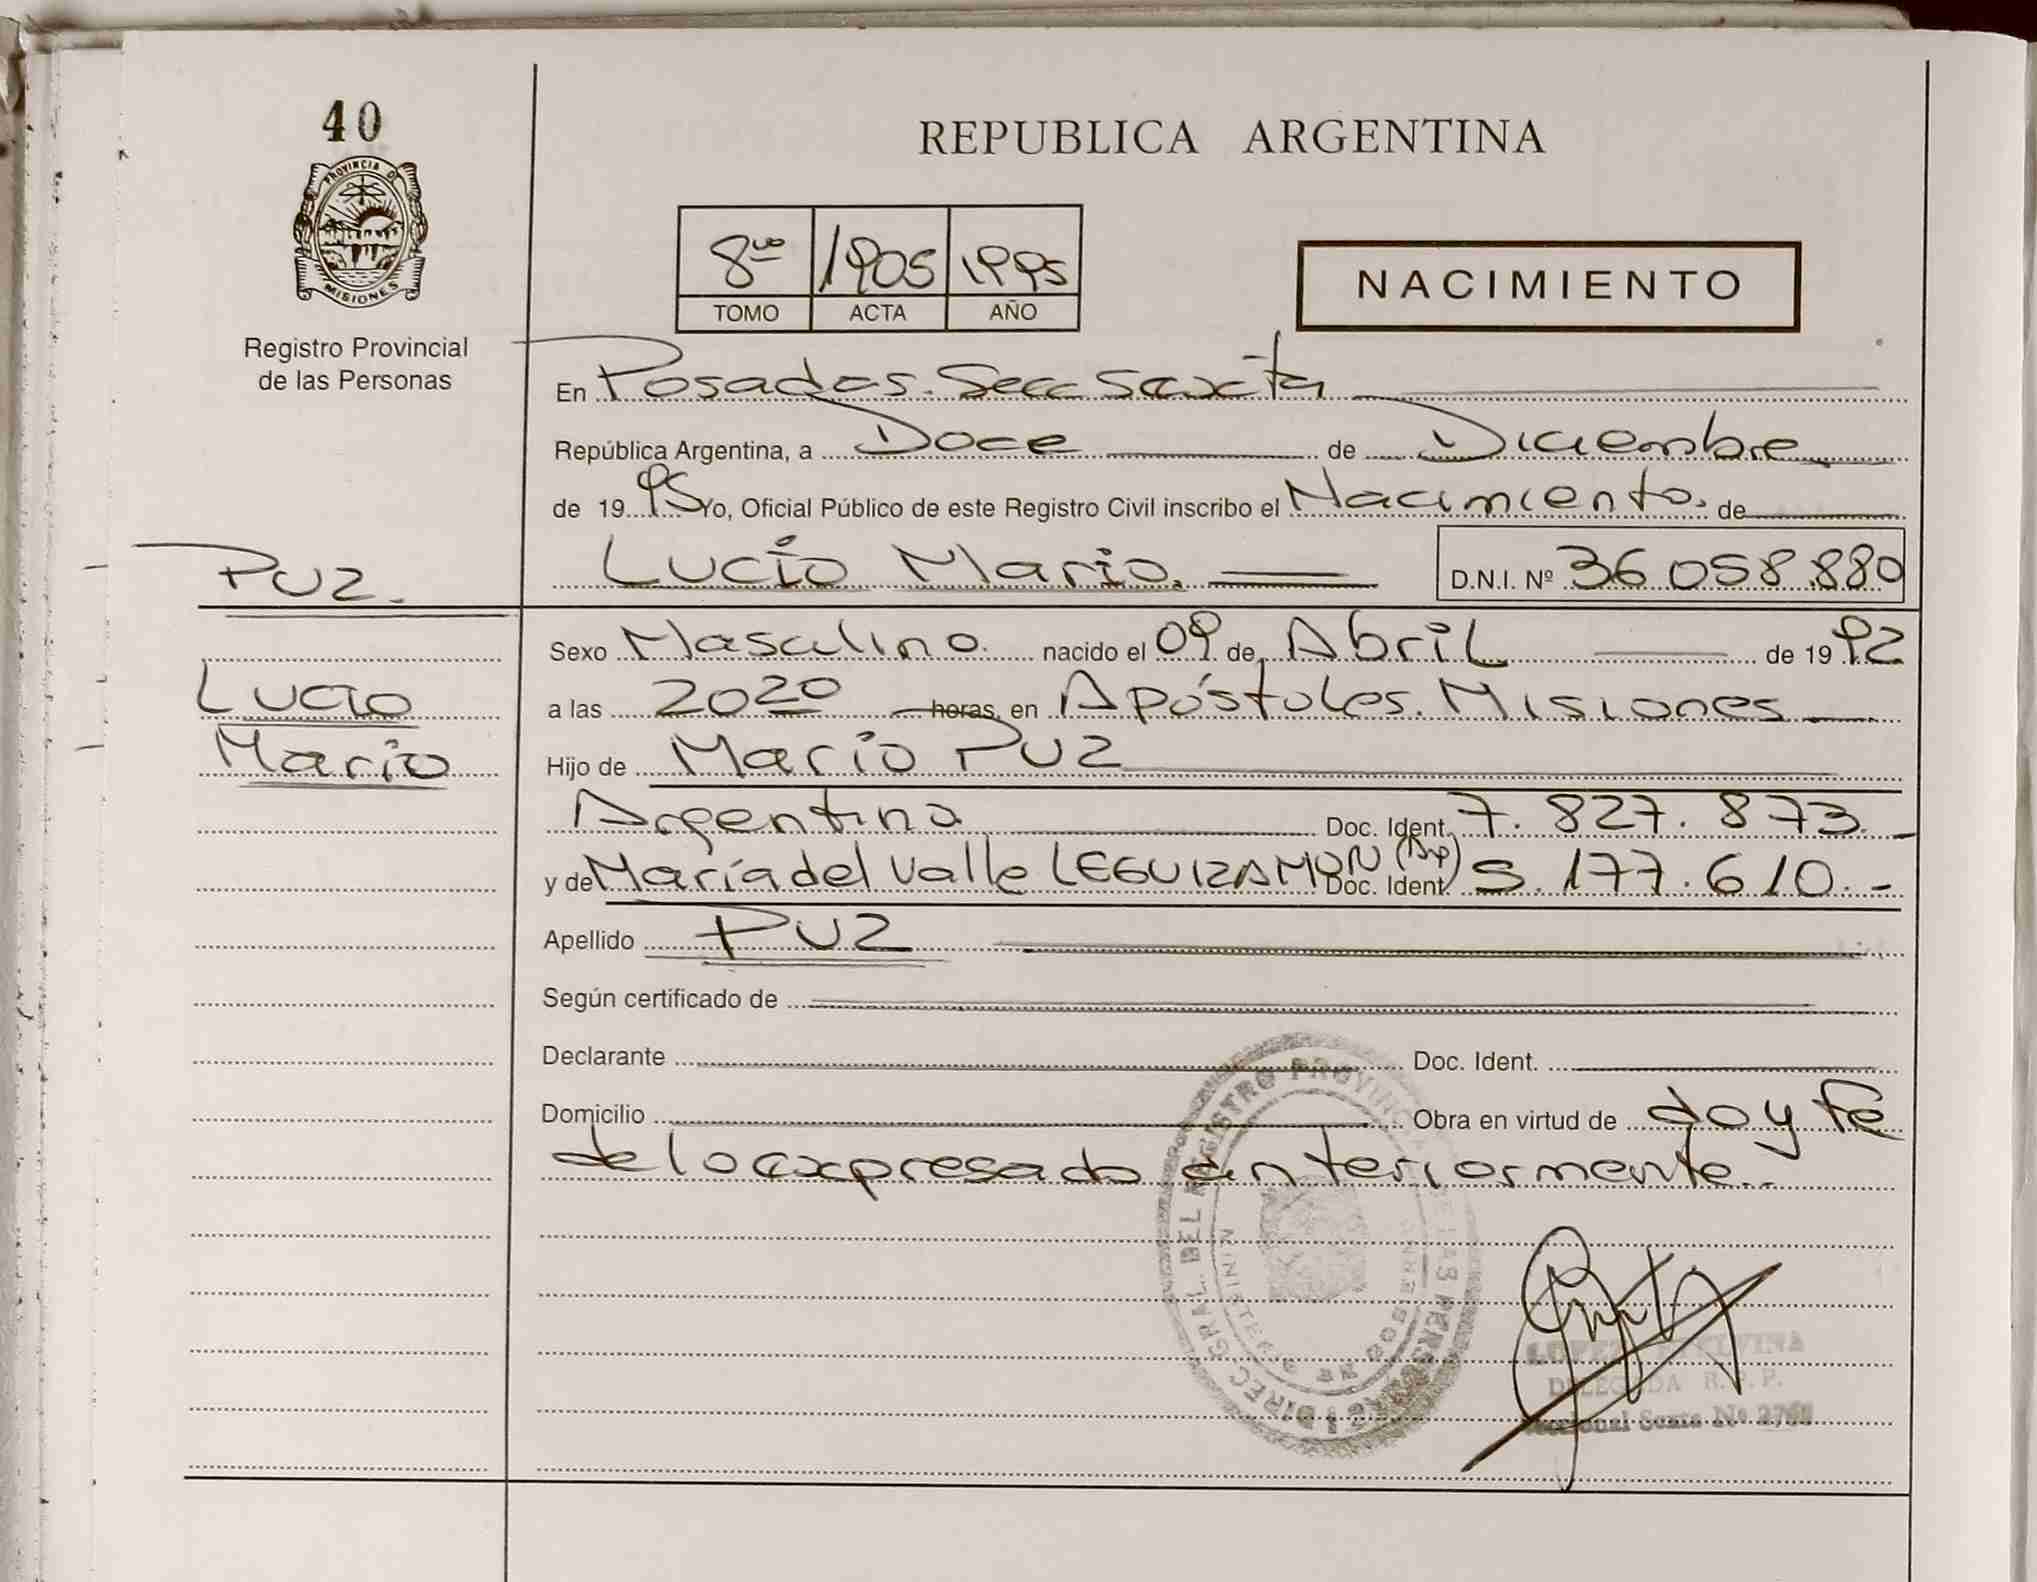 40
PROVINCIA DE
MISIONES
Registro Provincial
de las Personas
REPUBLICA ARGENTINA
8vo 1905 1995
TOMO ACTA AÑO
NACIMIENTO
En Posadas. Secc Sexta
República Argentina, a Doce de Diciembre
de 1995 Yo, Oficial Público de este Registro Civil inscribo el Nacimiento. de
Lucio Mario. D.N.I. Nº 36 058 880
PUZ.
Lucio
Mario
Sexo Masculino. nacido el 09 de Abril de 1992
a las 20 20 horas, en Apóstoles. Misiones
Hijo de Mario PUZ
Argentino Doc. Ident. 7.827.873.-
y de María del Valle LEGUIZAMON (Arg) Doc. Ident. 5.177.610.-
Apellido PUZ
Según certificado de
Declarante Doc. Ident.
Domicilio Obra en virtud de doy fe
de lo expresado anteriormente.
DIREC. GRAL. DEL REGISTRO PROVINCIAL DE LAS PERSONAS
DELEGADA R. P. P.
Seccional Sexta Nº